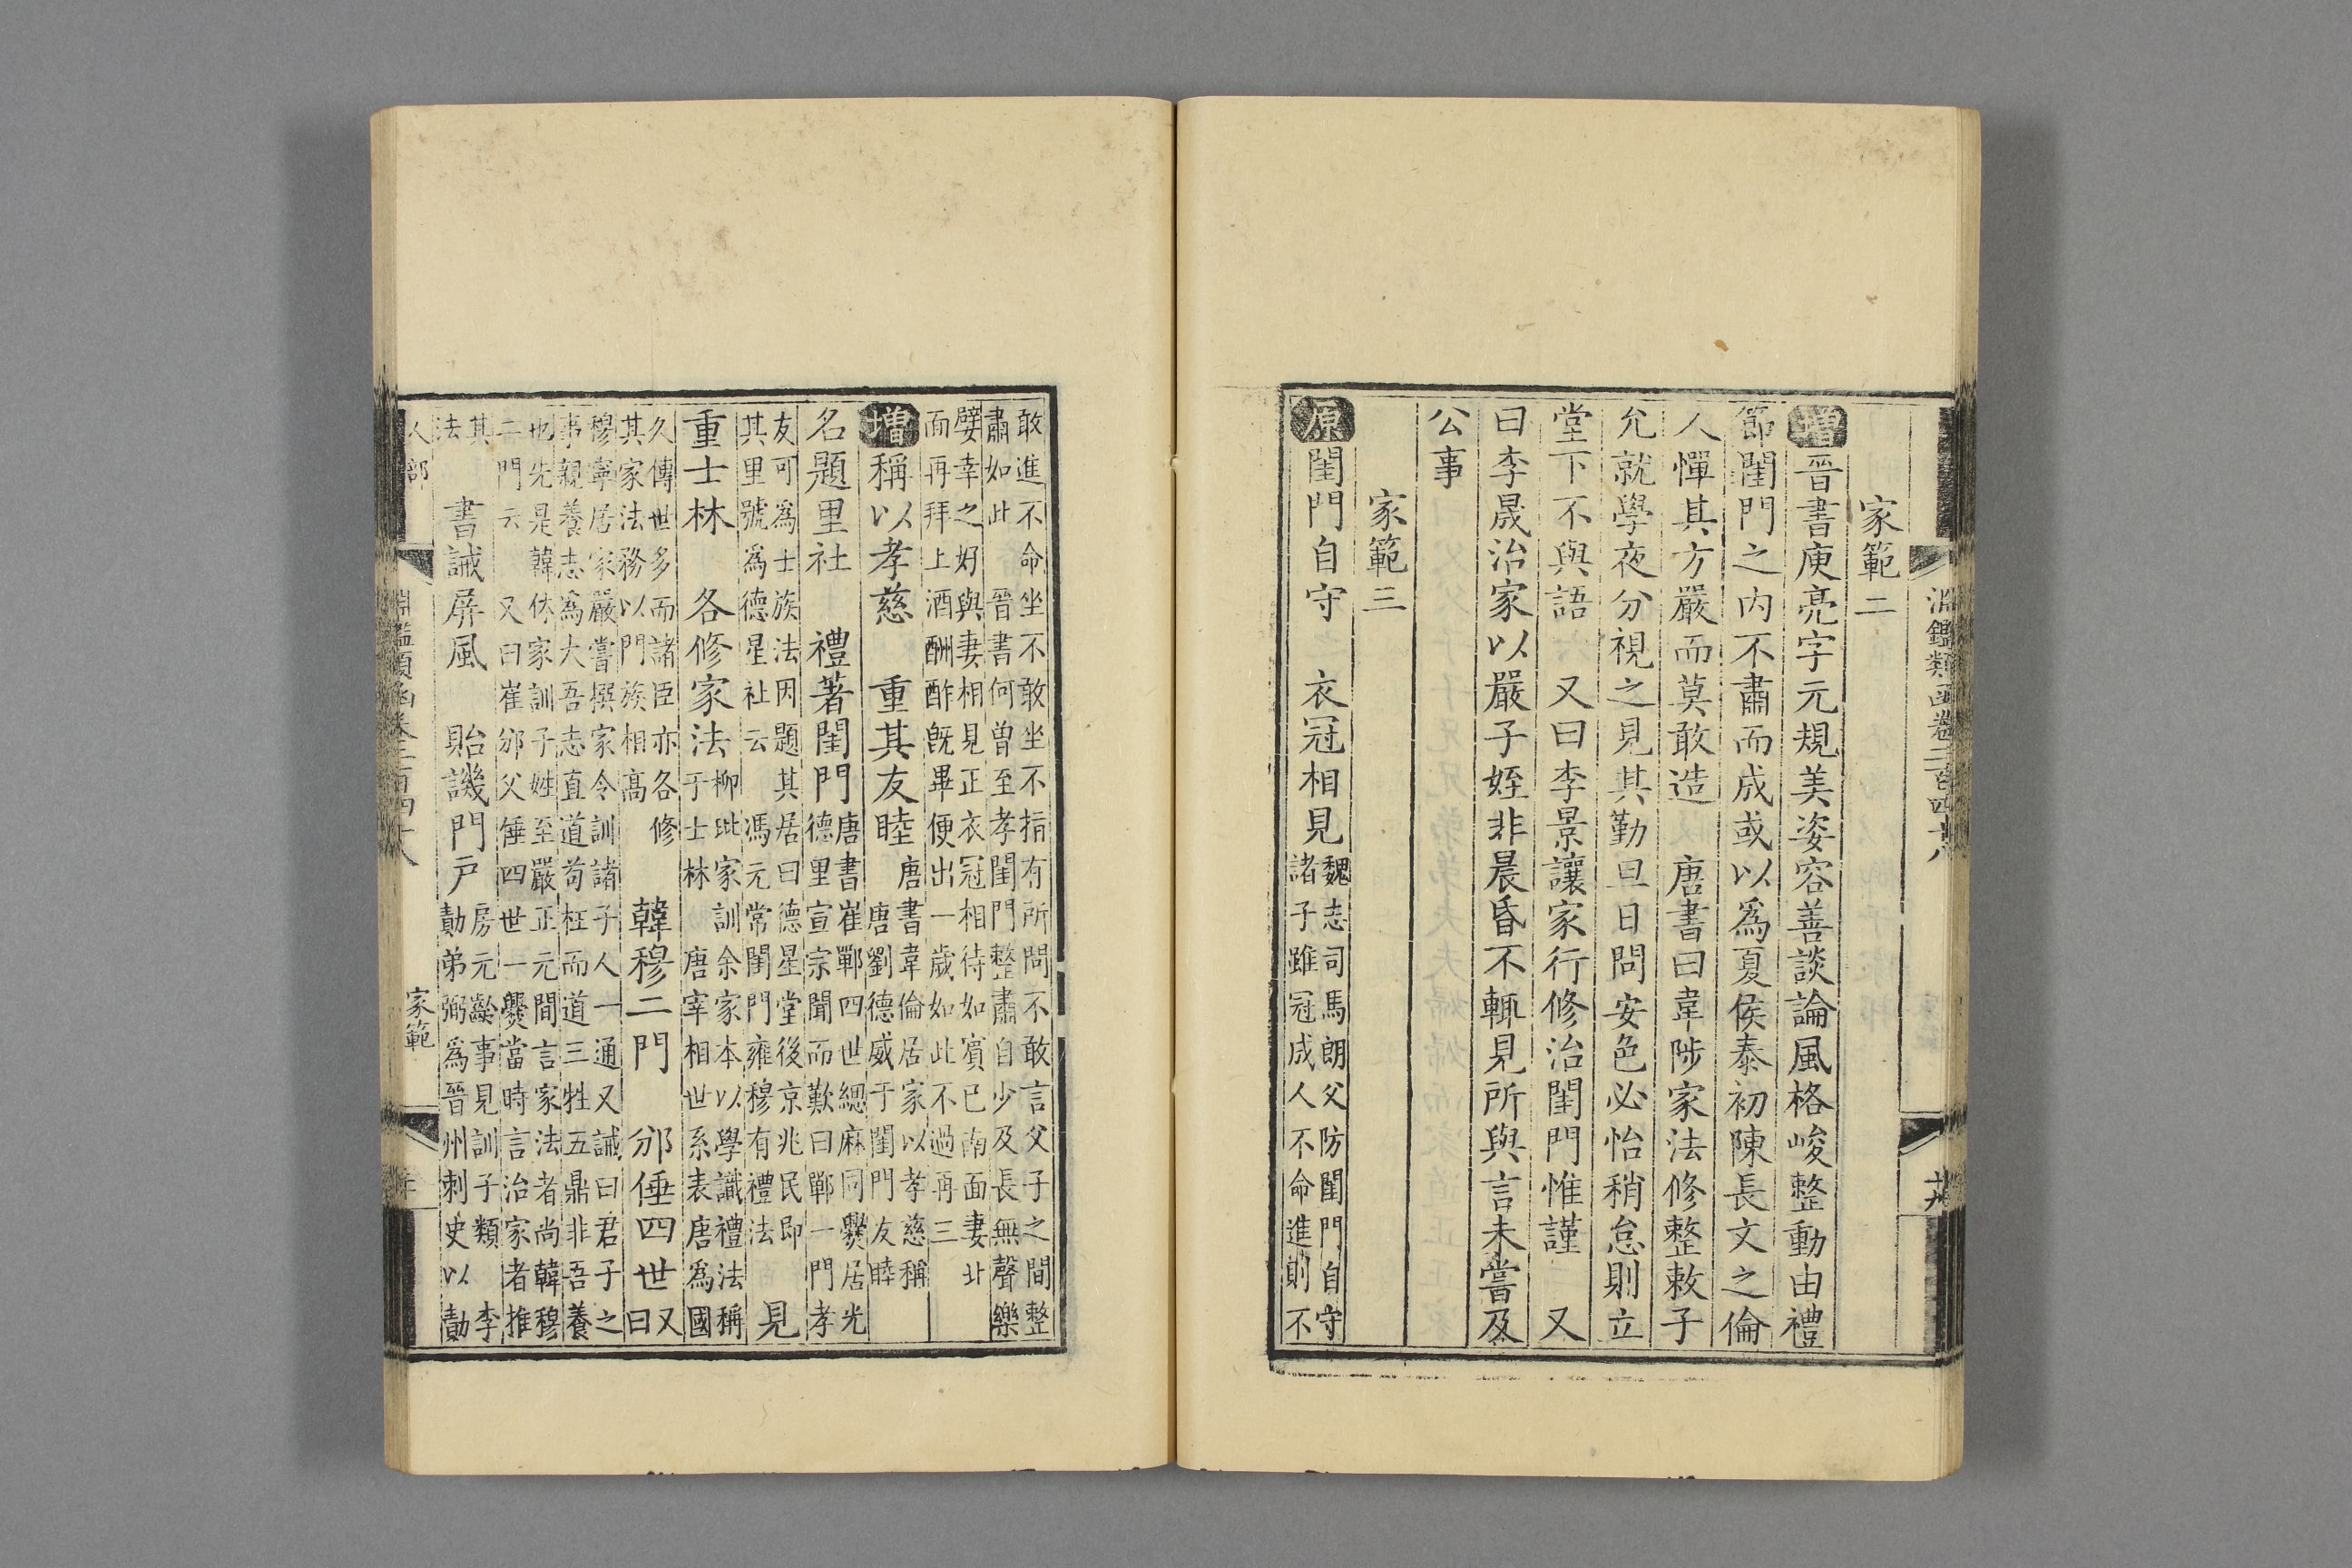 淵鑑類函卷二百四十八
家範二
增晉書庾亮字元規美姿容善談論風格峻整動由禮
節閨門之內不肅而成或以爲夏侯泰初陳長文之倫
人憚其方嚴而莫敢造 唐書曰韋陟家法修整敕子
允就學夜分視之見其勤旦日問安色必怡稍怠則立
堂下不與語 又曰李景讓家行修治閨門惟謹 又
曰李晟治家以嚴子姪非晨昏不輒見所與言未嘗及
公事
家範三
原閨門自守 衣冠相見魏志司馬朗父防閨門自守
諸子雖冠成人不命進則不
敢進不命坐不敢坐不指有所問不敢言父子之間整
肅如此 晉書何曾至孝閨門整肅自少及長無聲樂
嬖幸之好與妻相見正衣冠相待如賓已南面妻北
面再拜上酒酬酢旣畢便出一歲如此不過再三
增稱以孝慈 重其友睦唐書韋倫居家以孝慈稱
唐劉德威于閨門友睦
名題里社 禮著閨門唐書崔鄲四世緦麻同爨居光
德里宣宗聞而歎曰鄲一門孝
友可爲士族法因題其居曰德星堂後京兆民即
其里號爲德星社云 馮元常閨門雍穆有禮法 見
重士林 各修家法柳玭家訓余家本以學識禮法稱
于士林 唐宰相世系表唐爲國
久傳世多而諸臣亦各修
其家法務以門族相高 韓穆二門 邠倕四世又
曰
穆寧居家嚴嘗撰家令訓諸子人一通又誡曰君子之
事親養志爲大吾志直道苟枉而道三牲五鼎非吾養
也先是韓休家訓子姓至嚴正元間言家法者尚韓穆
二門云 又曰崔邠父倕四世一爨當時言治家者推
其
法 書誡屏風 貽譏門戶房元齡事見訓子類 李
勣弟弼爲晉州刺史以勣
人部
淵鑑類函卷二百四十八
家範